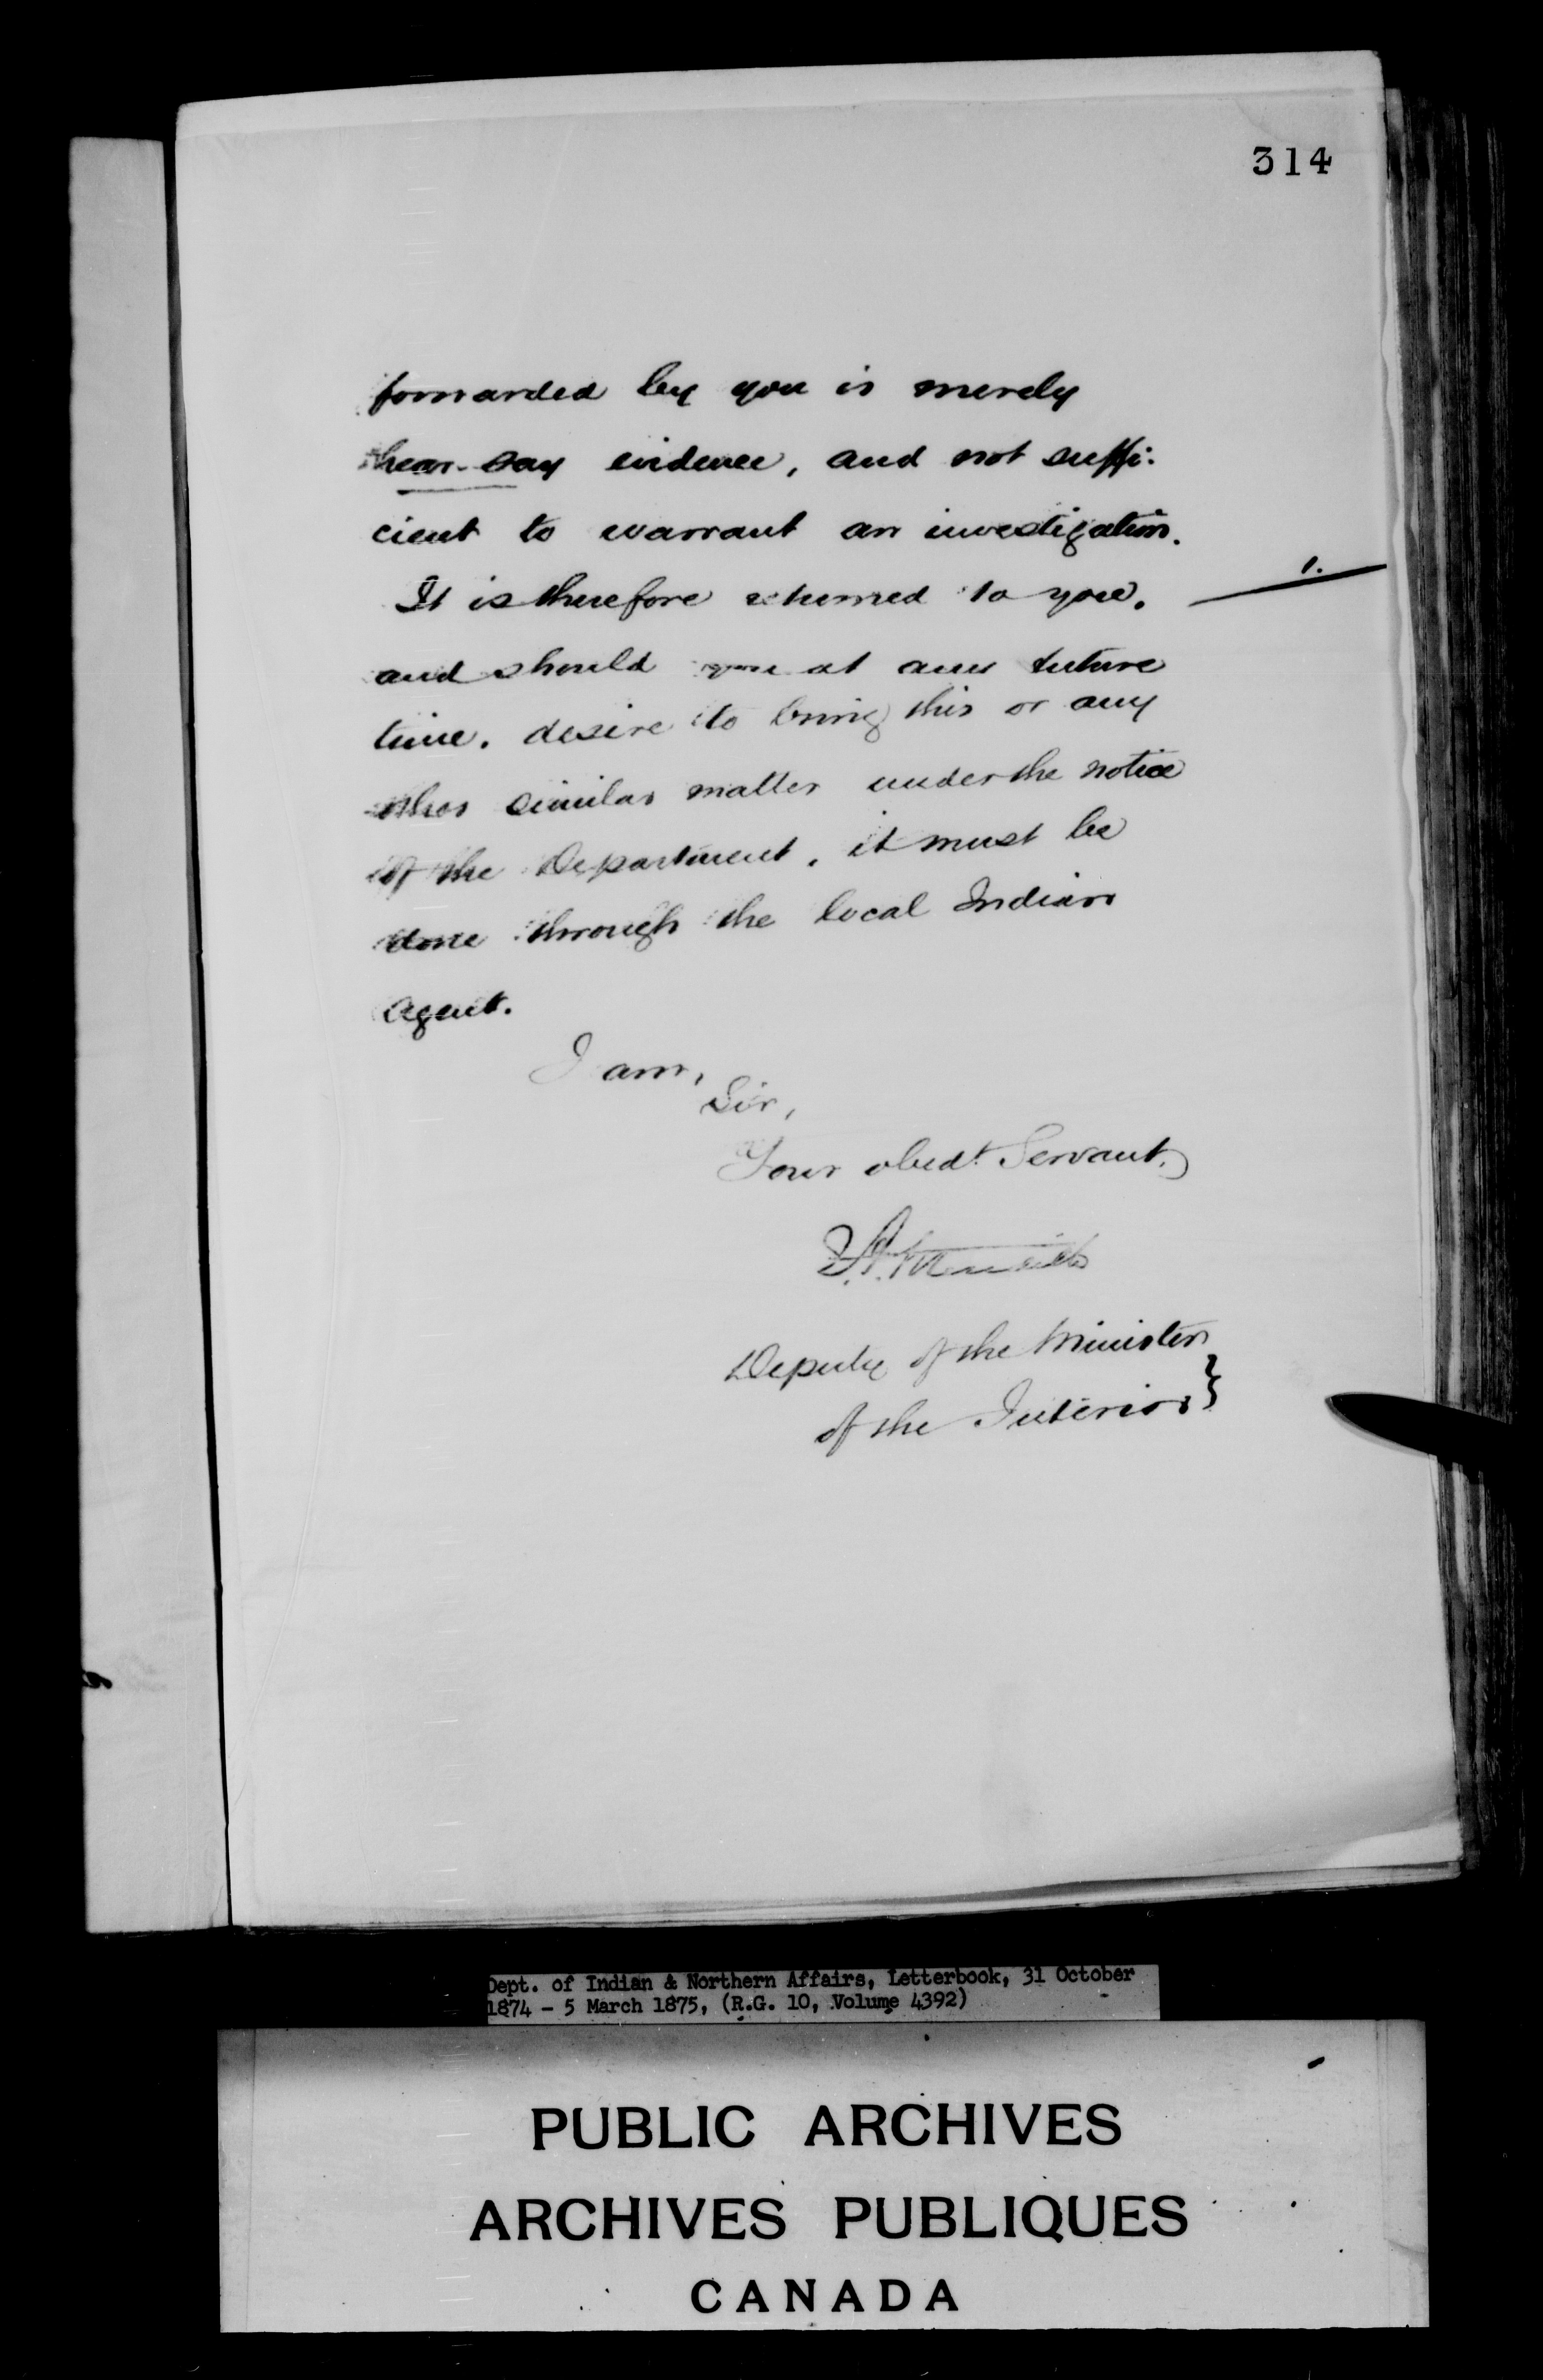 314
forwarded by you is merely
hear-say evidence, and not suffi-
cient to warrant an investigation.
It is therefore returned to you.
1.
and should you at any future
time. desire to bring this or any
other similar matter under the notice
of the Department, it must be
done through the local Indian
Agent.
I am,
Sir,
Your obedt. Servant,
Deputy of the Minister
of the Interior }
Dept. of Indian & Northern Affairs, Letterbook, 31 October
1874 - 5 March 1875, (R.G. 10, Volume 4392)
PUBLIC ARCHIVES
ARCHIVES PUBLIQUES
CANADA